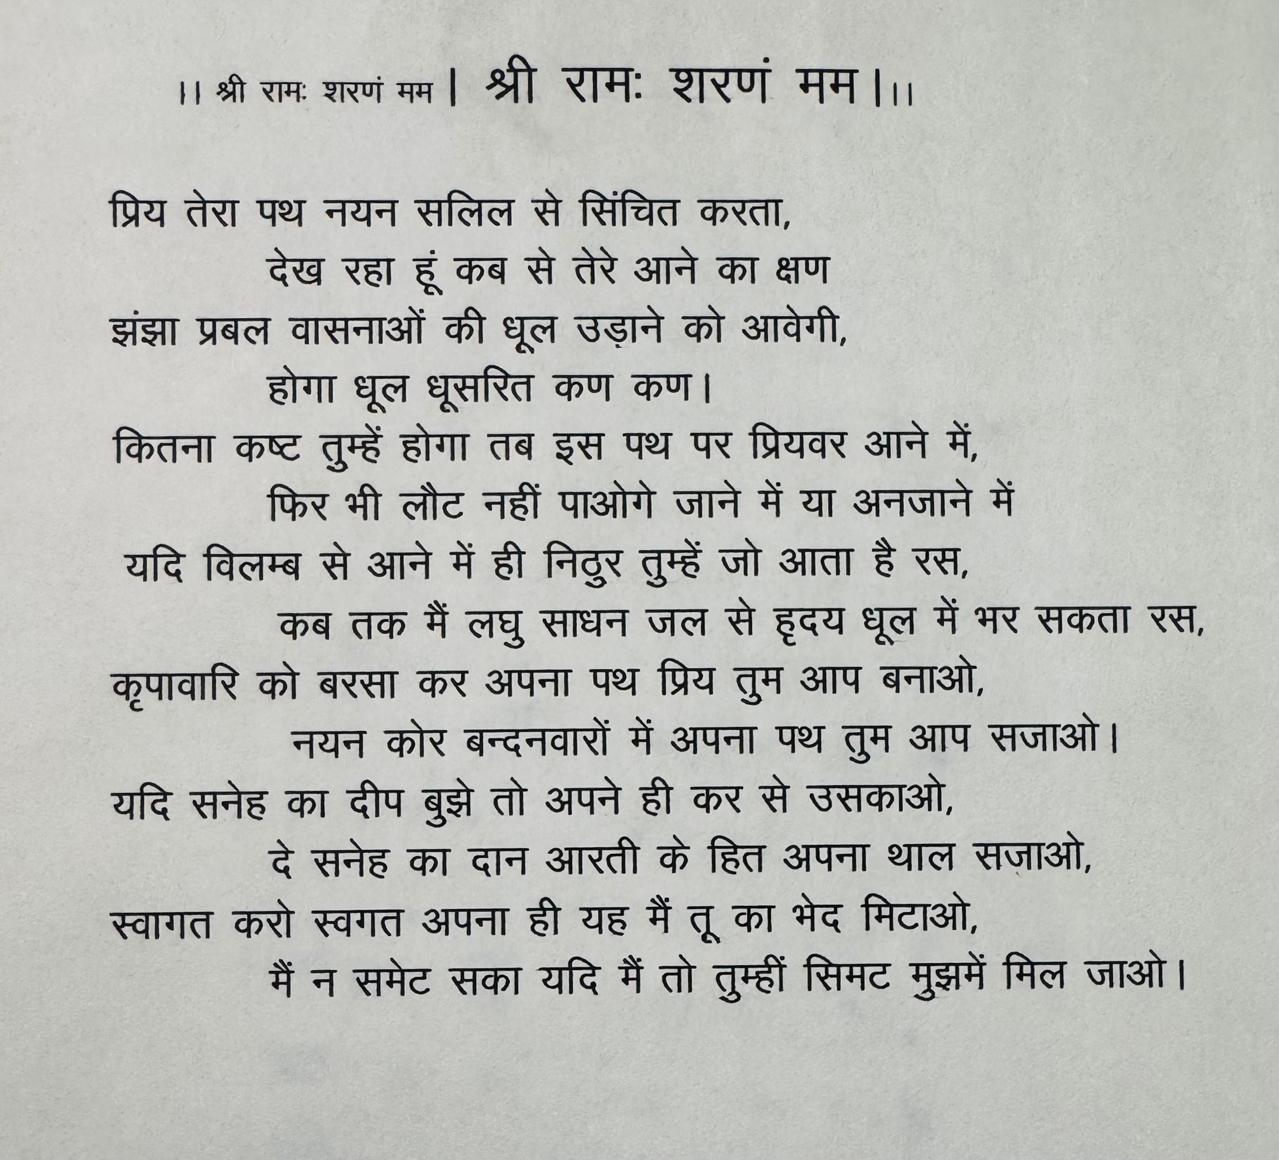 ।। श्री रामः शरणं मम । श्री रामः शरणं मम ।।।
प्रिय तेरा पथ नयन सलिल से सिंचित करता,
देख रहा हूं कब से तेरे आने का क्षण
झंझा प्रबल वासनाओं की धूल उड़ाने को आवेगी,
होगा धूल धूसरित कण कण।
कितना कष्ट तुम्हें होगा तब इस पथ पर प्रियवर आने में,
फिर भी लौट नहीं पाओगे जाने में या अनजाने में
यदि विलम्ब से आने में ही निठुर तुम्हें जो आता है रस,
कब तक मैं लघु साधन जल से हृदय धूल में भर सकता रस,
कृपावारि को बरसा कर अपना पथ प्रिय तुम आप बनाओ,
नयन कोर बन्दनवारों में अपना पथ तुम आप सजाओ।
यदि सनेह का दीप बुझे तो अपने ही कर से उसकाओ,
दे सनेह का दान आरती के हित अपना थाल सजाओ,
स्वागत करो स्वगत अपना ही यह मैं तू का भेद मिटाओ,
मैं न समेट सका यदि मैं तो तुम्हीं सिमट मुझमें मिल जाओ।